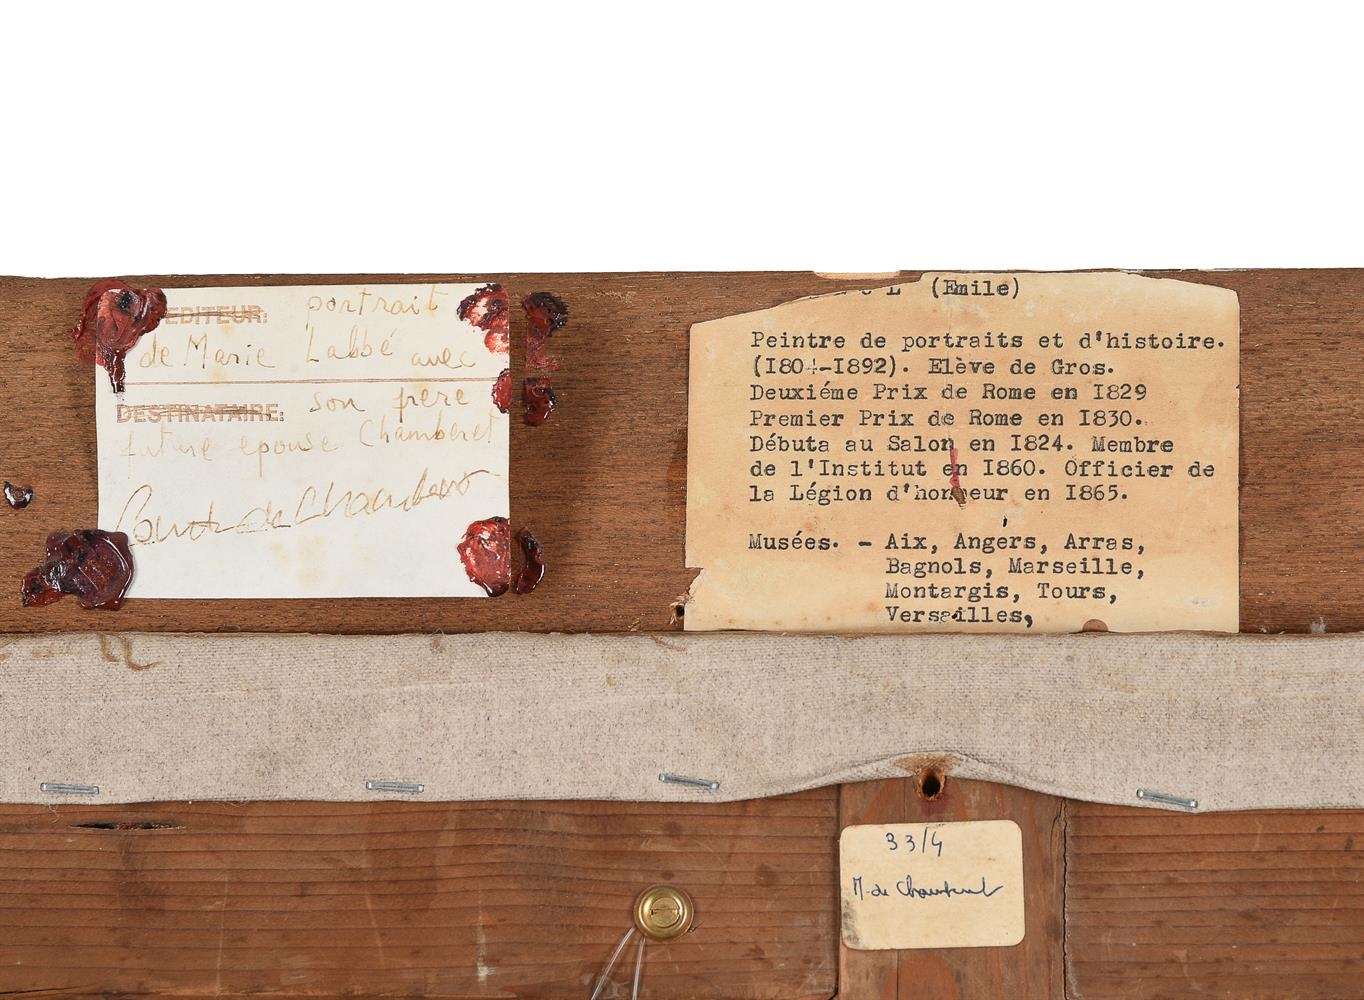 EDITEUR: portrait
de Marie Labbé avec
DESTINATAIRE: son père
future epouse Chamberet
Comte de Chamberet
(Emile)
Peintre de portraits et d'histoire.
(I804-I892). Elève de Gros.
Deuxiéme Prix de Rome en I829
Premier Prix de Rome en I830.
Débuta au Salon en I824. Membre
de l'Institut en I860. Officier de
la Légion d'honneur en I865.
Musées. - Aix, Angers, Arras,
Bagnols, Marseille,
Montargis, Tours,
Versailles,
33/4
M. de Chamberet